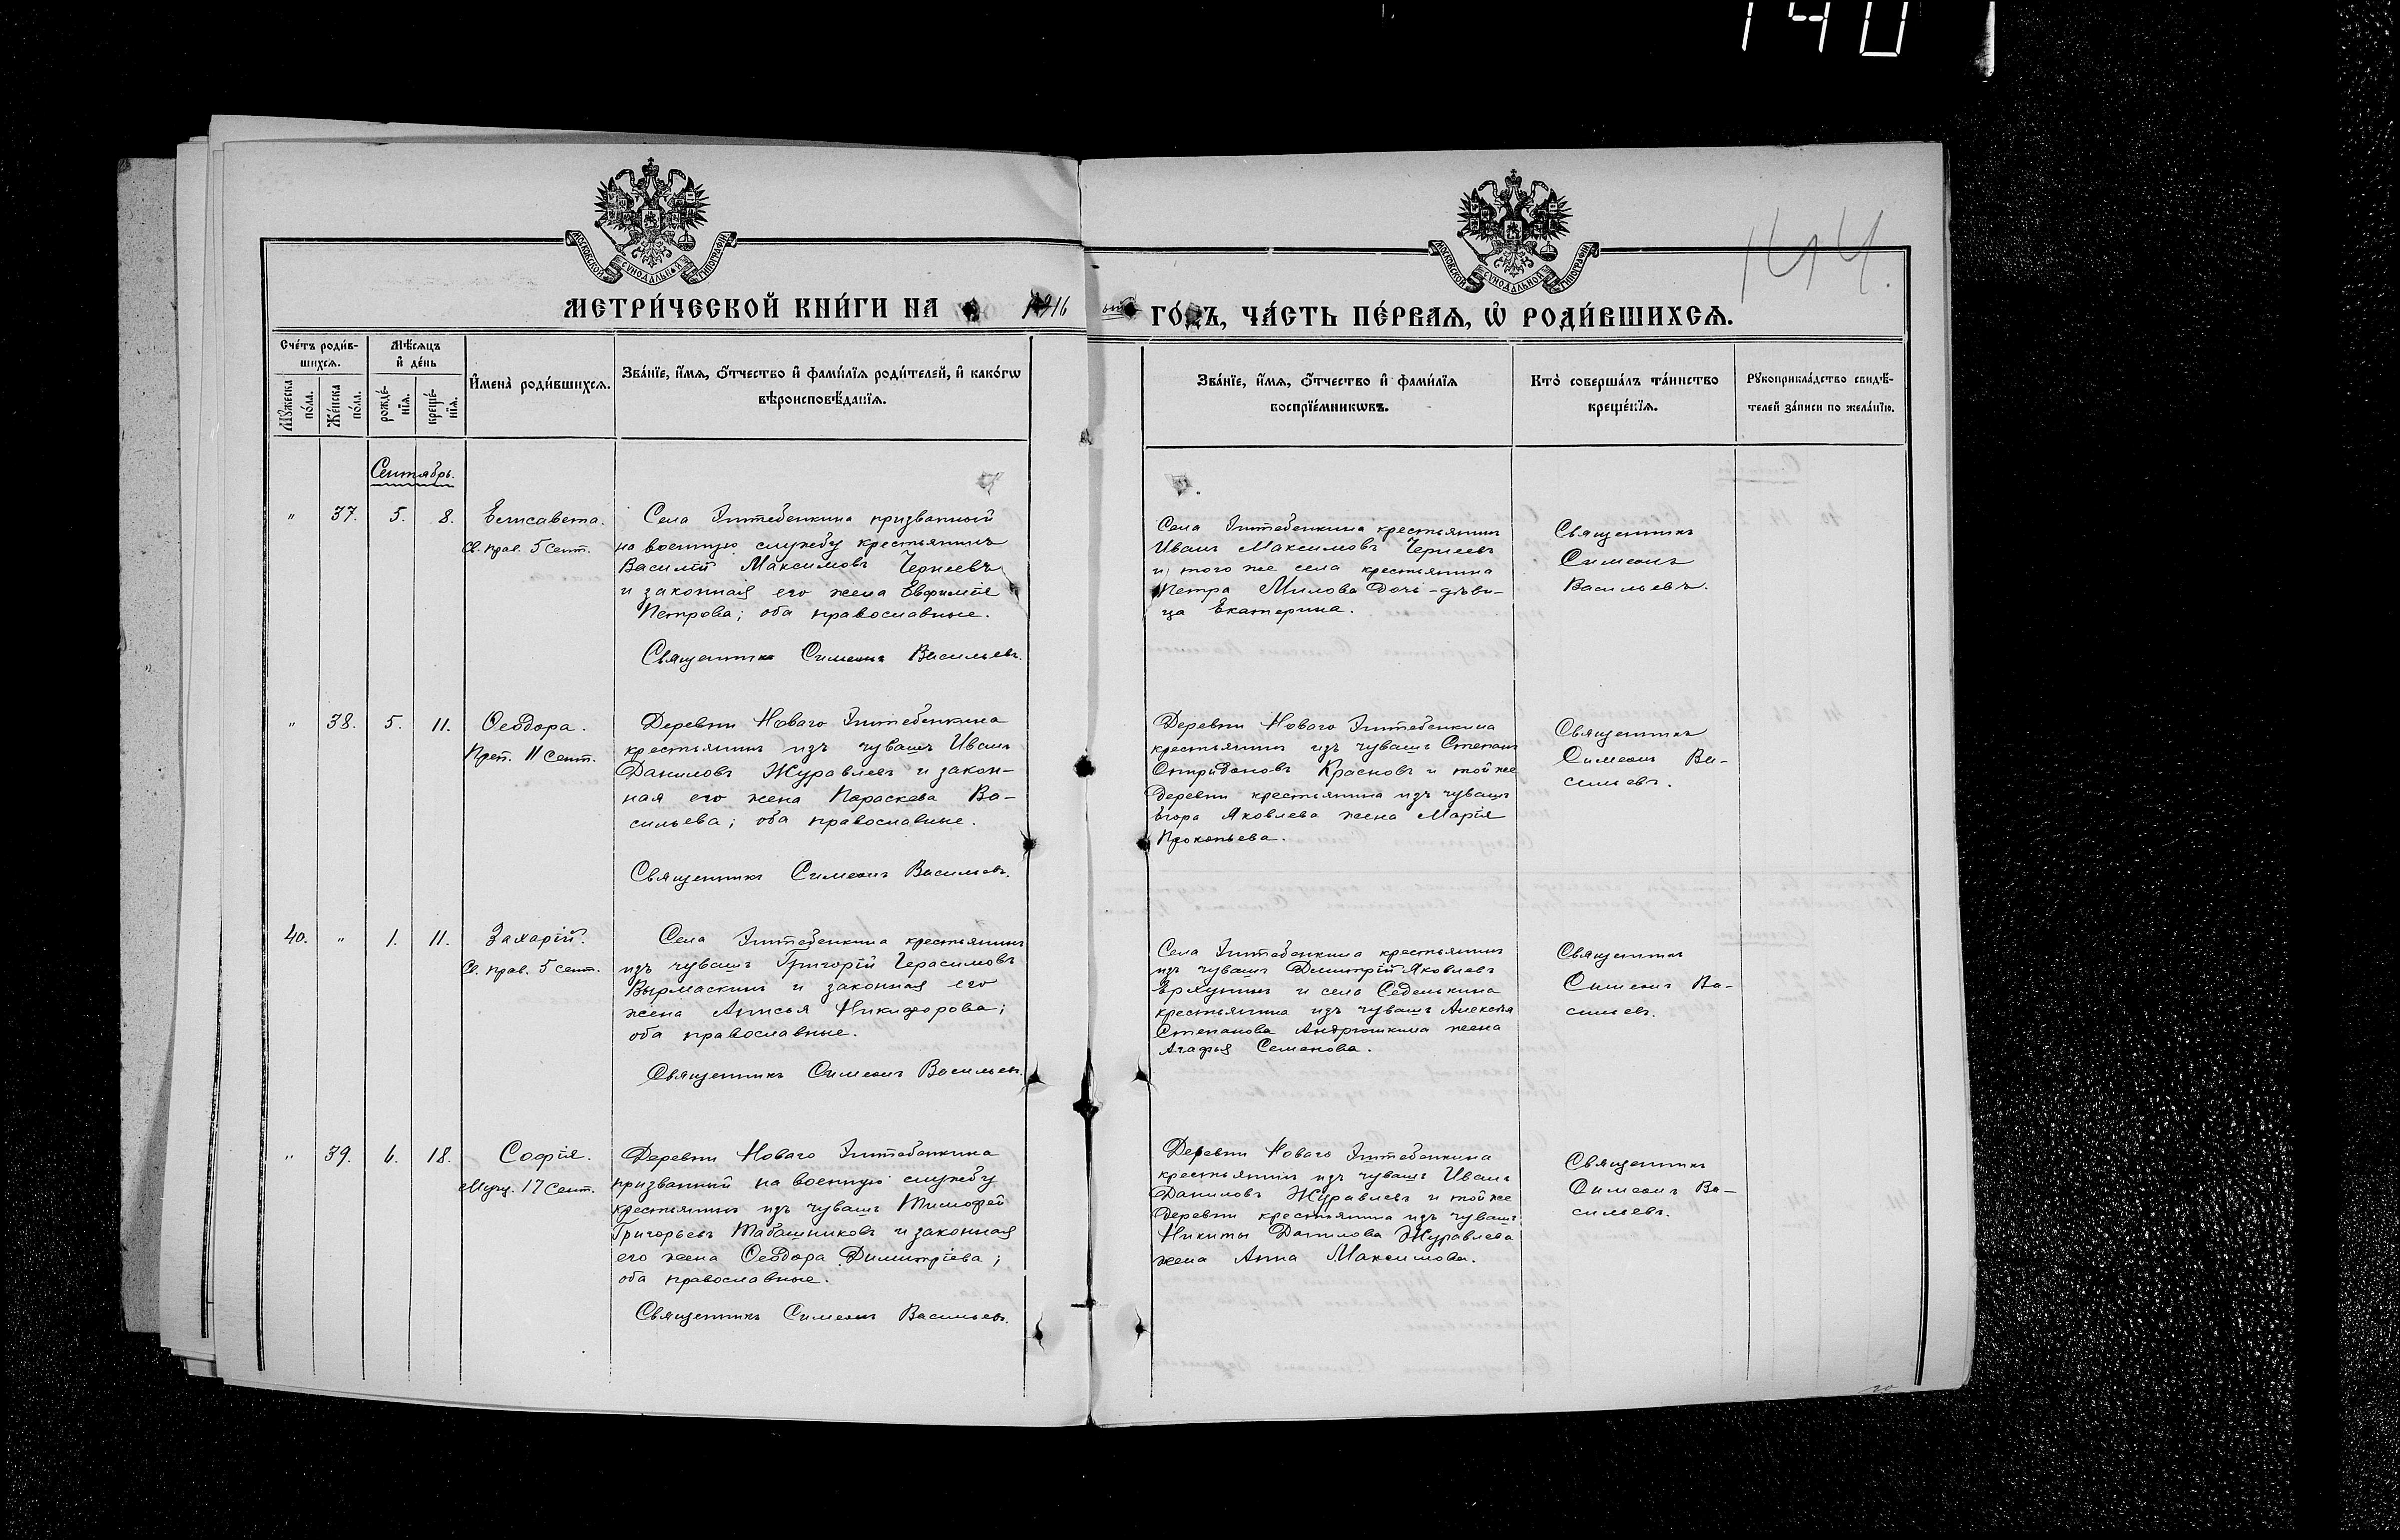 140
144.
МОСКОВСКОЙ СУНОДАЛЬНОЙ ТИПОГРАФІИ
МОСКОВСКОЙ СУНОДАЛЬНОЙ ТИПОГРАФІИ
МЕТРИ́ЧЕСКОЙ КНИ́ГИ НА 1916 ый ГО́ДЪ, ЧА́СТЬ ПЕ́РВАѦ, Ѡ҆ РОДИ́ВШИХСѦ.
Сче́тъ роди́в-
шихсѧ.
Мꙋ́жеска
по́ла.
Же́нска
по́ла.
Мѣ́сѧцъ
и҆ де́нь
рожде́-
нїѧ.
креще́-
нїѧ.
И҆мена̀ роди́вшихсѧ.
Зва́нїе, и҆́мѧ, ѻ҆́тчество и҆ фами́лїѧ роди́телей, и҆ како́гѡ
вѣроисповѣ́данїѧ.
Зва́нїе, и҆́мѧ, ѻ҆́тчество и҆ фами́лїѧ
воспрїе́мникѡвъ.
Кто̀ соверша́лъ та́инство
креще́нїѧ.
Рꙋкоприкла́дство свидѣ́-
телей за́писи по жела́нїю.
Сентябрь.
" 37. 5. 8.
Елисавета.
Св. прав. 5 сент.
Села Зитебенкина призванный
на военную службу крестьянинъ
Василій Максимовъ Чернеевъ
и законная его жена Евфимія
Петрова; оба православные.
Священникъ Симеонъ Васильевъ.
Села Зитебенкина крестьянинъ
Иванъ Максимовъ Чернеевъ
и того же села крестьянина
Петра Милова дочь-дѣви-
ца Екатерина.
Священникъ
Симеонъ
Васильевъ.
" 38. 5. 11.
Ѳеодора.
Преп. 11 сент.
Деревни Новаго Зитебенкина
крестьянинъ изъ чувашъ Иванъ
Даниловъ Журавлевъ и закон-
ная его жена Параскева Ва-
сильева; оба православные.
Священникъ Симеонъ Васильевъ.
Деревни Новаго Зитебенкина
крестьянинъ изъ чувашъ Степанъ
Спиридоновъ Красновъ и той же
деревни крестьянина изъ чувашъ
Егора Яковлева жена Марія
Прокопьева.
Священникъ
Симеонъ Ва-
сильевъ.
40. " 1. 11.
Захарій.
Св. прав. 5 сент.
Села Зитебенкина крестьянинъ
изъ чувашъ Григорій Герасимовъ
Вырмаскинъ и законная его
жена Анисья Никифорова;
оба православные.
Священникъ Симеонъ Васильевъ.
Села Зитебенкина крестьянинъ
изъ чувашъ Димитрій Яковлевъ
и села Седенькина
крестьянина изъ чувашъ Алексѣя
Степанова Андрюшкина жена
Агафья Семенова.
Священникъ
Симеонъ Ва-
сильевъ.
" 39. 6. 18.
Софія.
Муч. 17 сент.
Деревни Новаго Зитебенкина
призванный на военную службу
крестьянинъ изъ чувашъ Тимофей
Григорьевъ Табашниковъ и законная
его жена Ѳеодора Димитріева;
оба православные.
Священникъ Симеонъ Васильевъ.
Деревни Новаго Зитебенкина
крестьянинъ изъ чувашъ Иванъ
Даниловъ Журавлевъ и той же
деревни крестьянина изъ чувашъ
Никиты Данилова Журавлева
жена Анна Максимова.
Священникъ
Симеонъ Ва-
сильевъ.